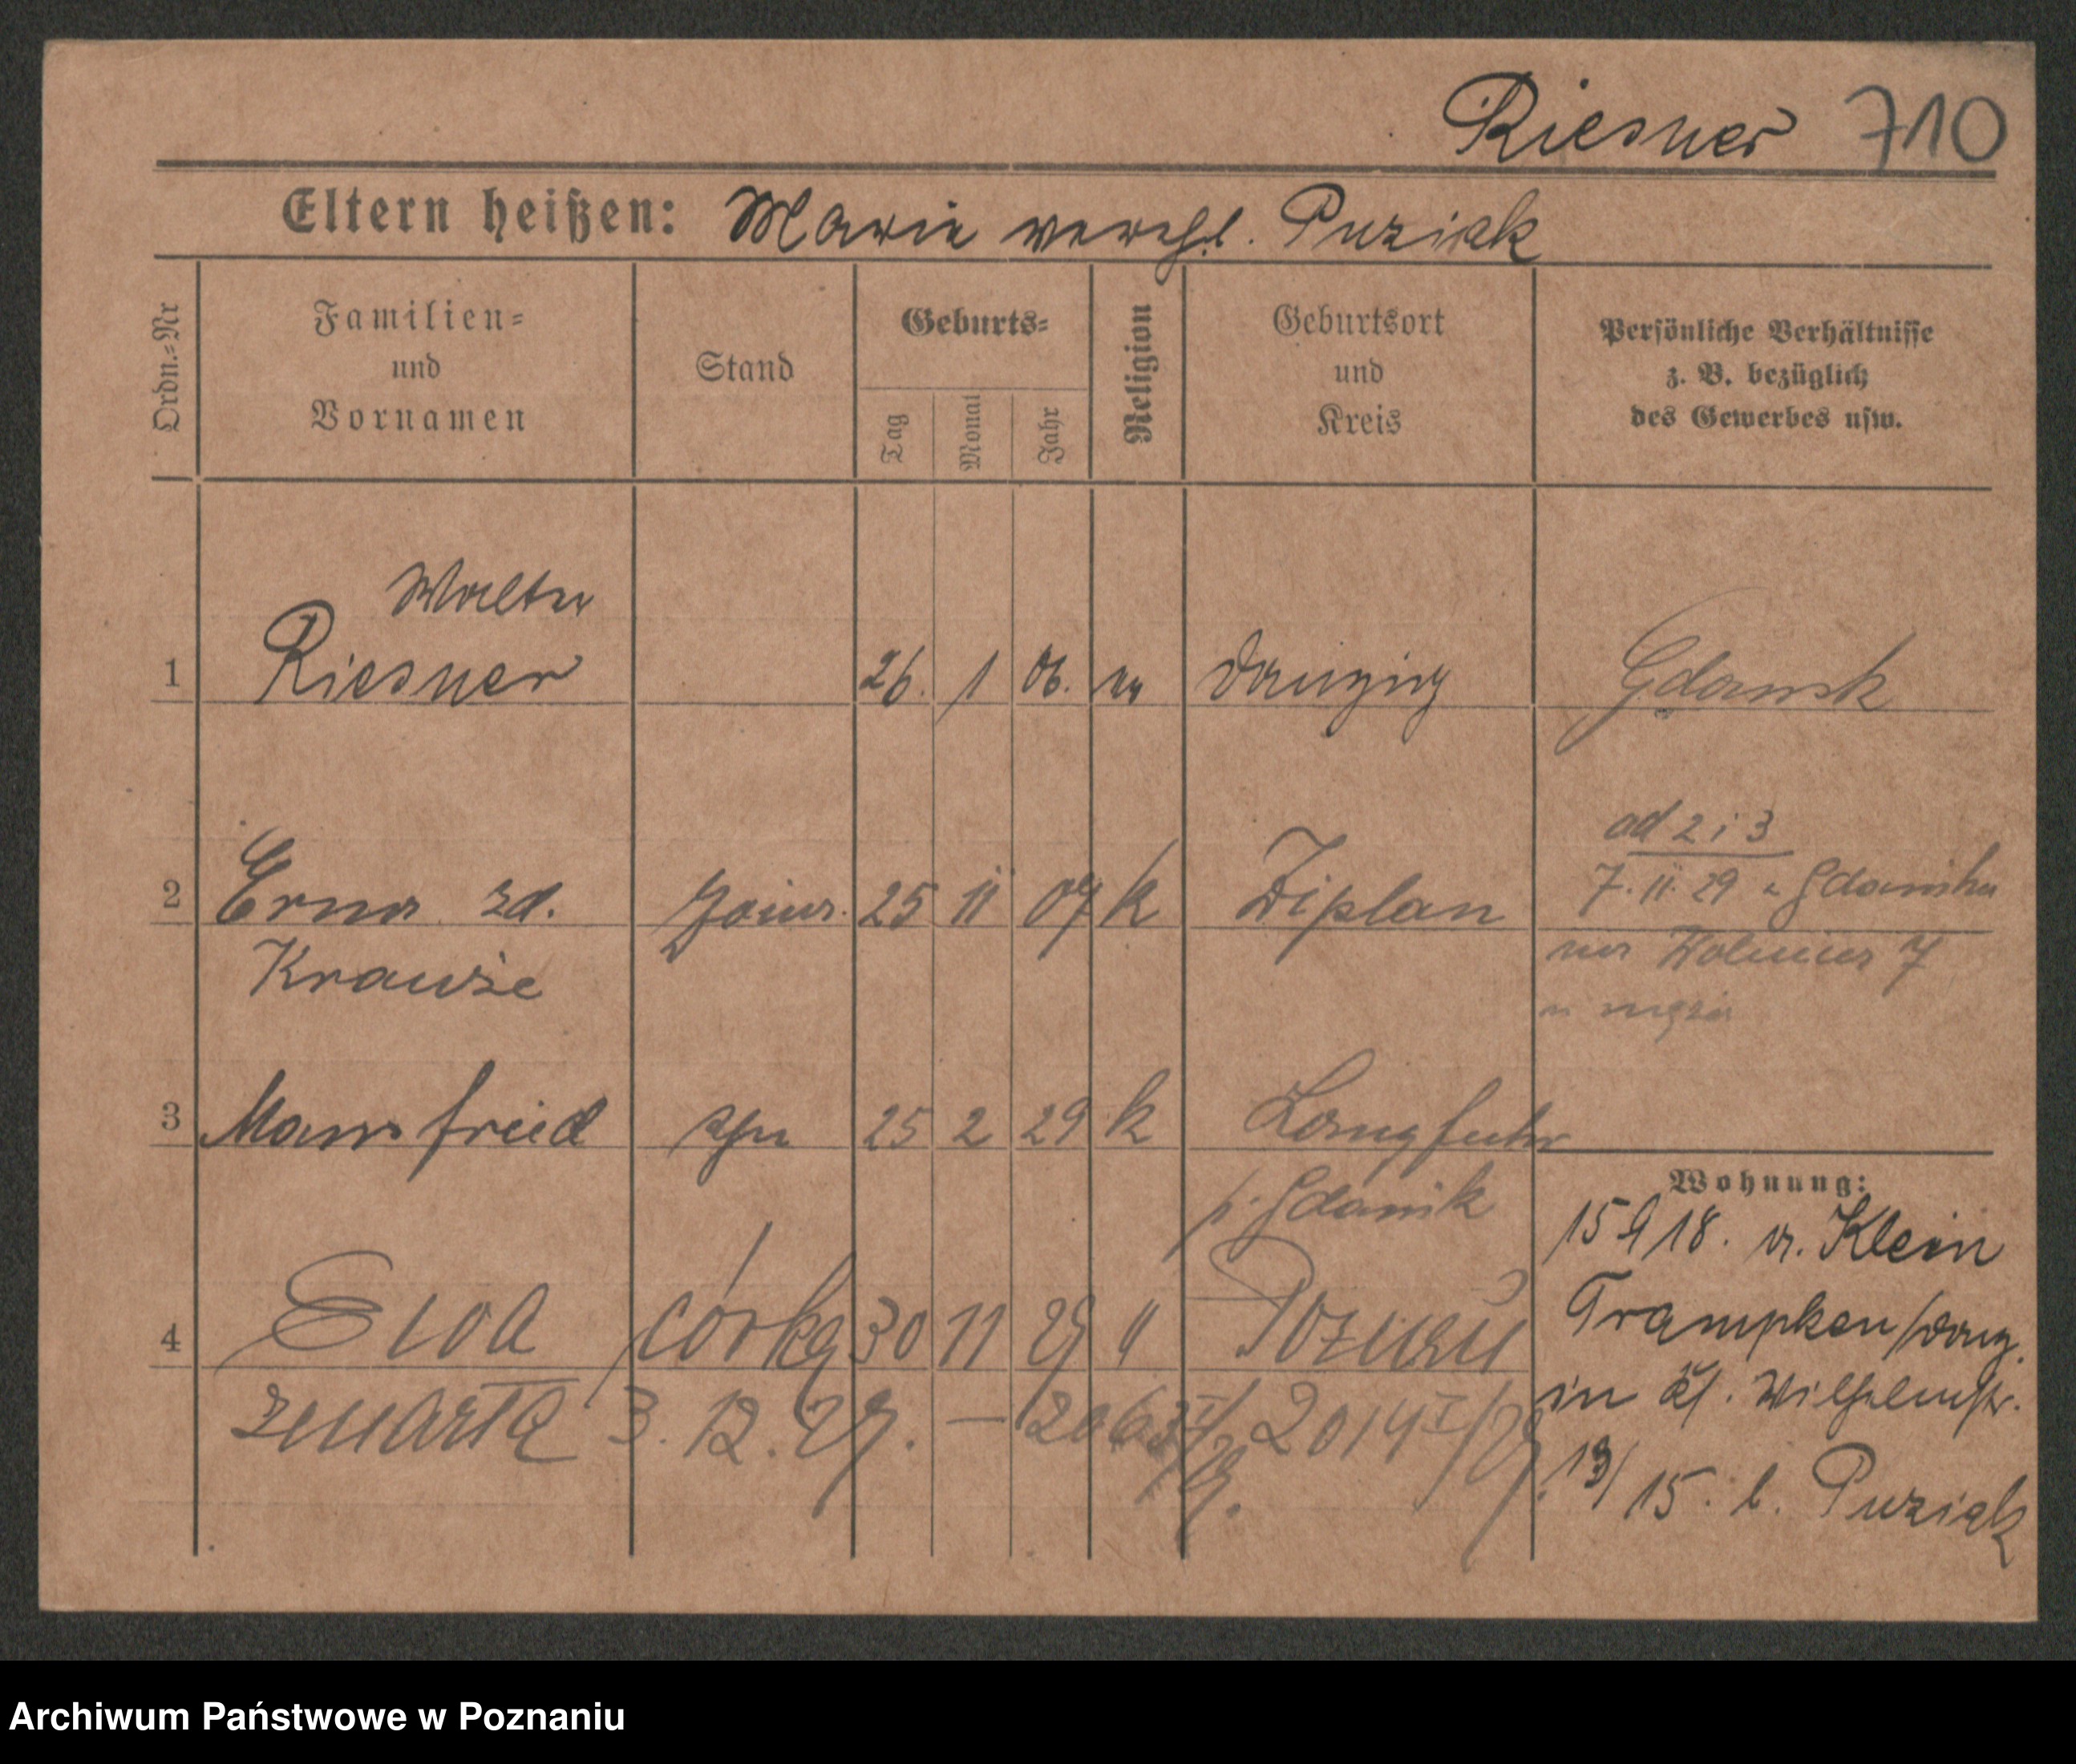 Riesner 710
Eltern heißen: Marie verehl. Puziak
Ordn.=Nr
Familien=
und
Vornamen
Stand
Geburts=
Tag
Monat
Jahr
Religion
Geburtsort
und
Kreis
Persönliche Verhältnisse
z. B. bezüglich
des Gewerbes usw.
Walter
1 Riesner 26. 1 06. ev Danzig Gdansk
ad 2 i 3
7. 11. 29 z Gdańska
2 Erna zd. 25 11 07 k Ziplau
Krauze
na 7
3 Manfried syn 25 2 29 k Langfuhr
p. Gdańsk
Wohnung:
15 9 18. v. Klein
4 Ewa córka 30 11 29 " Poznań
Trampken/Danz.
zmarła 3. 12. 29. — 2014 I/29.
in Wilhelmstr.
15. b. Puziak
Archiwum Państwowe w Poznaniu